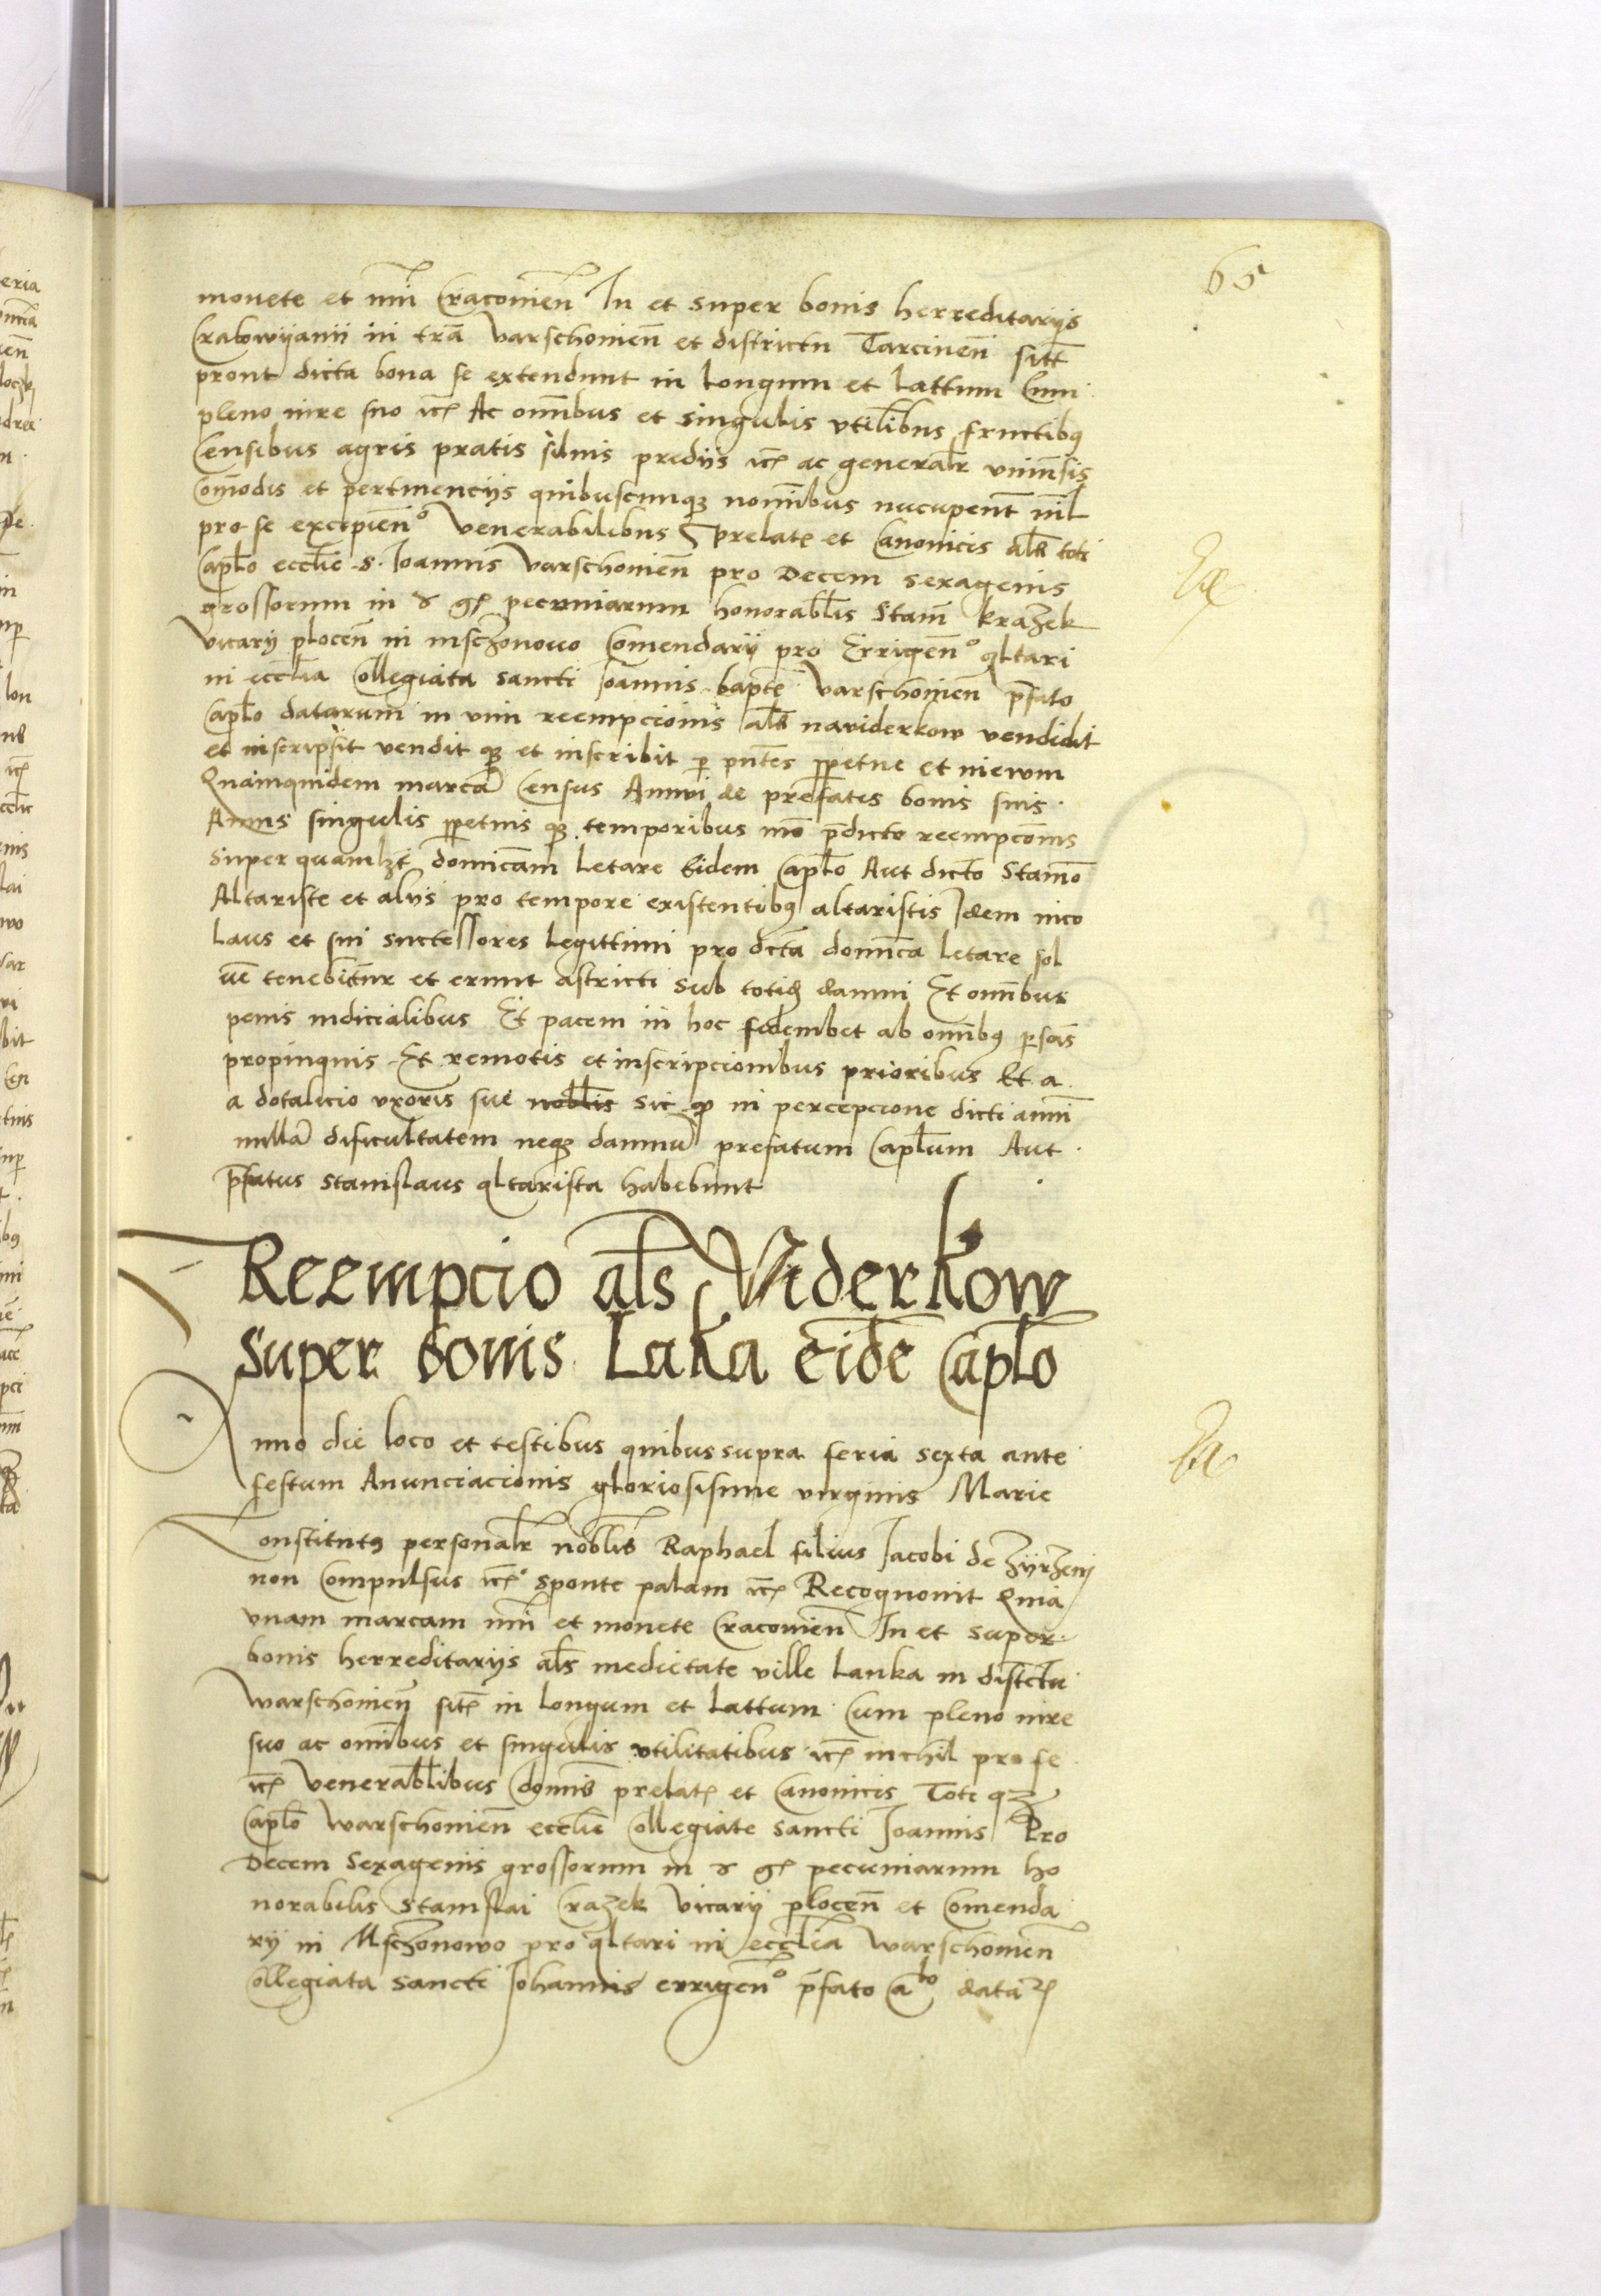 65
monete et nūi Cracovien̄ In et super bonis herreditarijs
Crakowijanii in trā Varschovien̄ et districtu Tarcinen̄ sitt
pront dicta bona se extendunt in longum et lattum Cum
pleno iure suo etc Ac omībus et singulis vtilibus fructibq
Censibus agris pratis siluis predijs etc ac generalr vniuersis
Comodis et pertinencijs quibuscunqz nomībus nucupent nil
pro se excipien̄o Venerabilibus prelatꝭ et Canonicis als toti
Caplo ecclie S. Joannis Varschovien̄ pro Decem sexagenis
grossorum in gꝭ pecuniarum honorablis Stanī krazek
Vicarij plocen̄ in mschonovo Comendarij pro Errigen̄o altari
in ecclia Collegiata sancti Joannis bapte Varschovien̄ pfato
Caplo datarum in vim reempcionis als naviderkow vendidit
et inscripsit vendit qz et inscribit p pntes ppetue et in evum
Quamquidem marcā Census Annui de prefatis bonis suis
Annis singulis ppetuis qz temporibus mō pdicto reempcōnis
Super quamlzt domīcam Letare Eidem Caplo Aut dicto Stanō
Altariste et alijs pro tempore existentibq altaristis Idem nico
laus et sui successores legittimi pro dcta domīca letare sol
ue tenebitur et erunt astricti sub totiq damni Et omībus
penis iudicialibus Et pacem in hoc ab omībq psōis
propinquis Et remotis et inscripcionibus prioribus Et a
a dotalicio vxoris sue noblis sic qo in percepcione dicti anni
nullā dificultatem neqz damnū prefatum Caplum Aut
pfatus Stanislaus altarista habebunt
Reempcio als Viderkow
super bonis Laka eidē Caplo
Anno die loco et testibus quibus supra feria sexta ante
festum Anunciacionis gloriosisime virginis Marie
Constitutq personalr noblis Raphael filius Jacobi de Zijrzenij
non Compulsus etc sponte palam etc Recognovit Quia
vnam marcam nūi et monete Cracovien̄ In et super
bonis herreditarijs als medietate ville Lanka in distctu
Warschovien̄ sitꝭ in longum et lattum Cum pleno iure
suo ac omībus et singulis vtilitatibus etc nichil pro se
etc Venerablibus dominis prelatꝭ et Canonicis Toti qz
Caplo Warschovien̄ ecclie Collegiate sancti Joannis Pro
Decem Sexagenis grossorum in gꝭ pecuniarum ho
norabilis Stanislai Crazek Vicarij plocen̄ et Comenda
rij in Mschonowo pro altari in ecclia Warschovien̄
Collegiata sancti Johannis errigen̄o pfato Calo dataꝝ